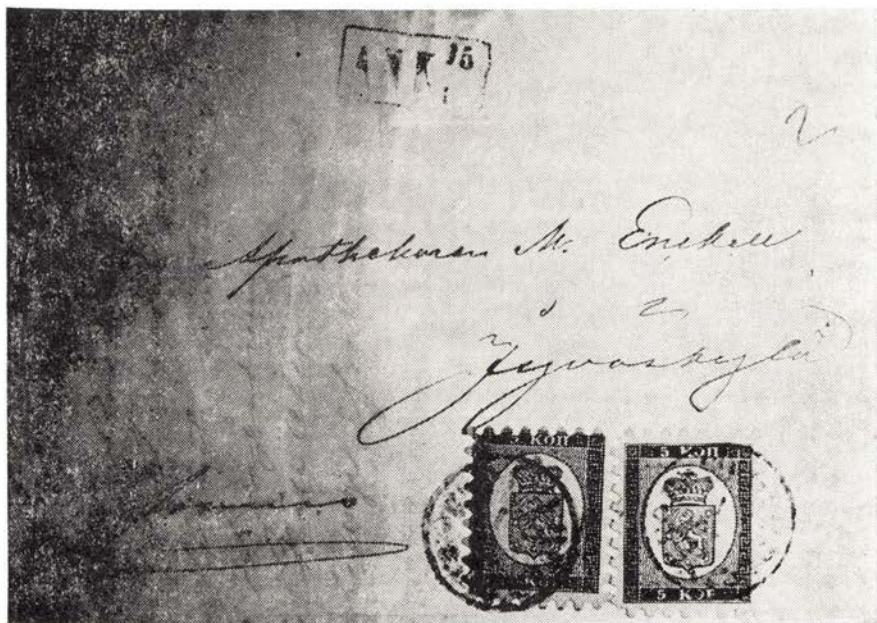 ANK 15
1
Apothekaren M. Enckell
Jyväskylä
5 КОП
5 КОП
5 KOP